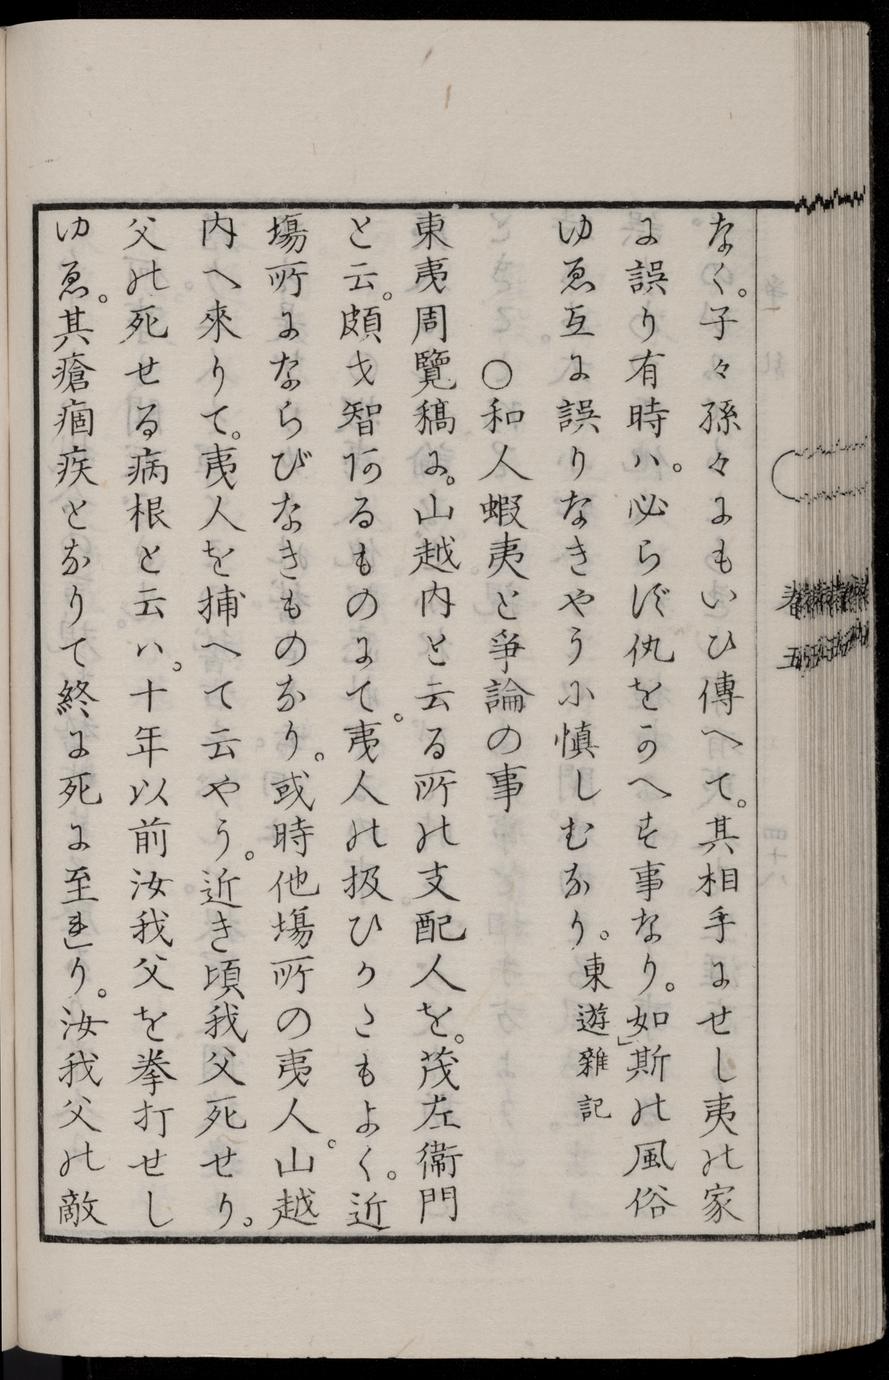 なく。子々孫々にもいひ傳へて。其相手にせし夷の家
に誤り有時ハ。必らず仇をかへす事なり。如斯の風俗
ゆゑ互に誤りなきやうに慎しむなり。東遊雜記
〇和人蝦夷と爭論の事
東夷周覽稿に。山越内と云る所の支配人を。茂左衞門
と云。頗才智あるものにて。夷人の扱ひかたもよく。近
塲所にならびなきものなり。或時他塲所の夷人山越
内へ來りて。夷人を捕へて云やう。近き頃我父死せり。
父の死せる病根と云ハ。十年以前汝我父を拳打せし
ゆゑ。其瘡痼疾となりて終に死に至れり。汝我父の敵
卷五